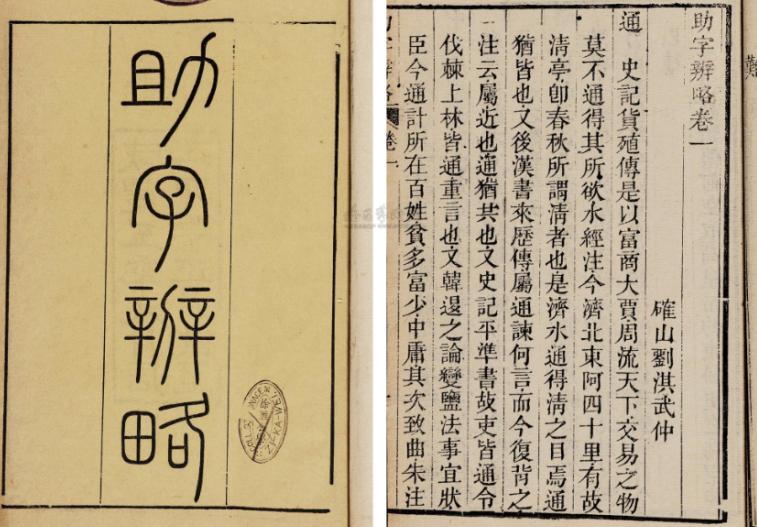 助字辨略
助字辨略卷一
確山劉淇武仲
通　史記貨殖傳是以富商大賈周流天下交易之物
莫不通得其所欲水經注今濟北東阿四十里有故
清亭卽春秋所謂清者也是濟水通得清之目焉通
猶皆也又後漢書來歷傳屬通諫何言而今復背之
注云屬近也通猶共也又史記平準書故吏皆通令
伐棘上林皆通重言也又韓退之論變鹽法事宜狀
臣今通計所在百姓貧多富少中庸其次致曲朱注
卷一